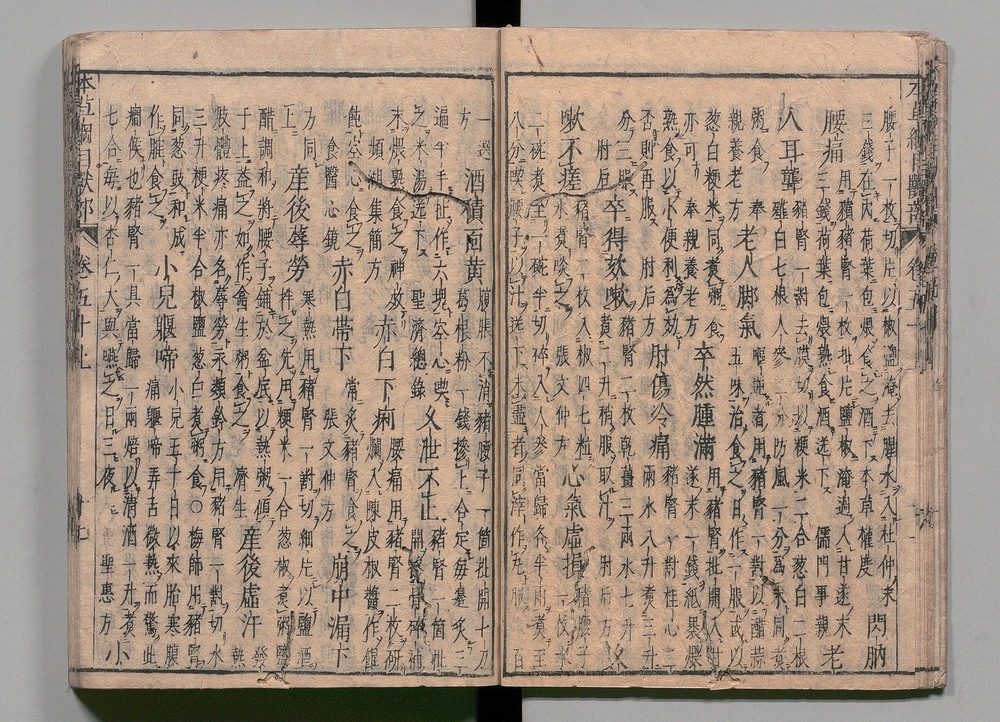 腰子一枚切片以椒鹽淹去腥水入杜仲末
三錢在內荷葉包煨食之酒下本草權度 閃肭
腰痛用豶豬腎一枚批片鹽椒淹過入甘遂末
三錢荷葉包煨熟食酒送下 儒門事親 老
人耳聾豬腎一對去膜切以粳米二合葱白二根
薤白七根人參二分防風一分為末同煮
粥食 奉親養老方 老人脚氣嘔逆者用豬腎一對以醋蒜
五味治食之日作一服或以
葱白粳米同煮粥食
亦可 奉親養老方 卒然腫滿用豬腎批開入甘
遂末一錢紙裹煨
熟食以小便利為効
否則再服 肘后方 肘傷冷痛豬腎一對桂心
二兩水八升煮三升
分三服
肘后方 卒得欬嗽豬腎二枚乾薑三兩水七升
煮二升稍服取汗 肘后方
嗽不瘥豬腎二枚入椒四七粒
水煮啖之 張文仲方 心氣虛損豬腰子
一枚水
二碗煮至一碗半切碎入人參當歸各半兩煮至
八分喫腰子以汁送下未盡者同滓作丸服 百
一選
方 酒積面黃腹脹不消豬腰子一箇批開十刀
葛根粉一錢摻上合定每邊炙三
遍半手扯作六塊空心喫
之米湯送下 聖濟總錄 久泄不止豬腎一箇批
開摻骨碎補
末煨熟食之神效
頻湖集簡方 赤白下痢腰痛用豬腎二枚研
爛入陳皮椒醬作餛
飩空心食之
食醫心鏡 赤白帶下常炙豬腎食之
張文仲方 崩中漏下
方同
上 產後蓐勞寒熱用豬腎一對切細片以鹽酒
拌之先用粳米一合葱椒煮粥鹽
醋調和將腰子鋪於盆底以熱粥傾
于上蓋之如作盦生粥食之 濟生 產後虛汗發熱
肢體疼痛亦名蓐勞永類鈐方用豬腎一對切水
三升粳米半合椒鹽葱白煮粥食○梅師用豬腎
同葱豉和成
作臛食之 小兒軀啼小兒五十日以來胎寒腹
痛軀啼弄舌微熱而驚此
癎候也豬腎一具當歸一兩焙以清酒一升煮
七合每以杏仁大與嚥之日三夜一 聖惠方 小
本草綱目獸部 卷五十上